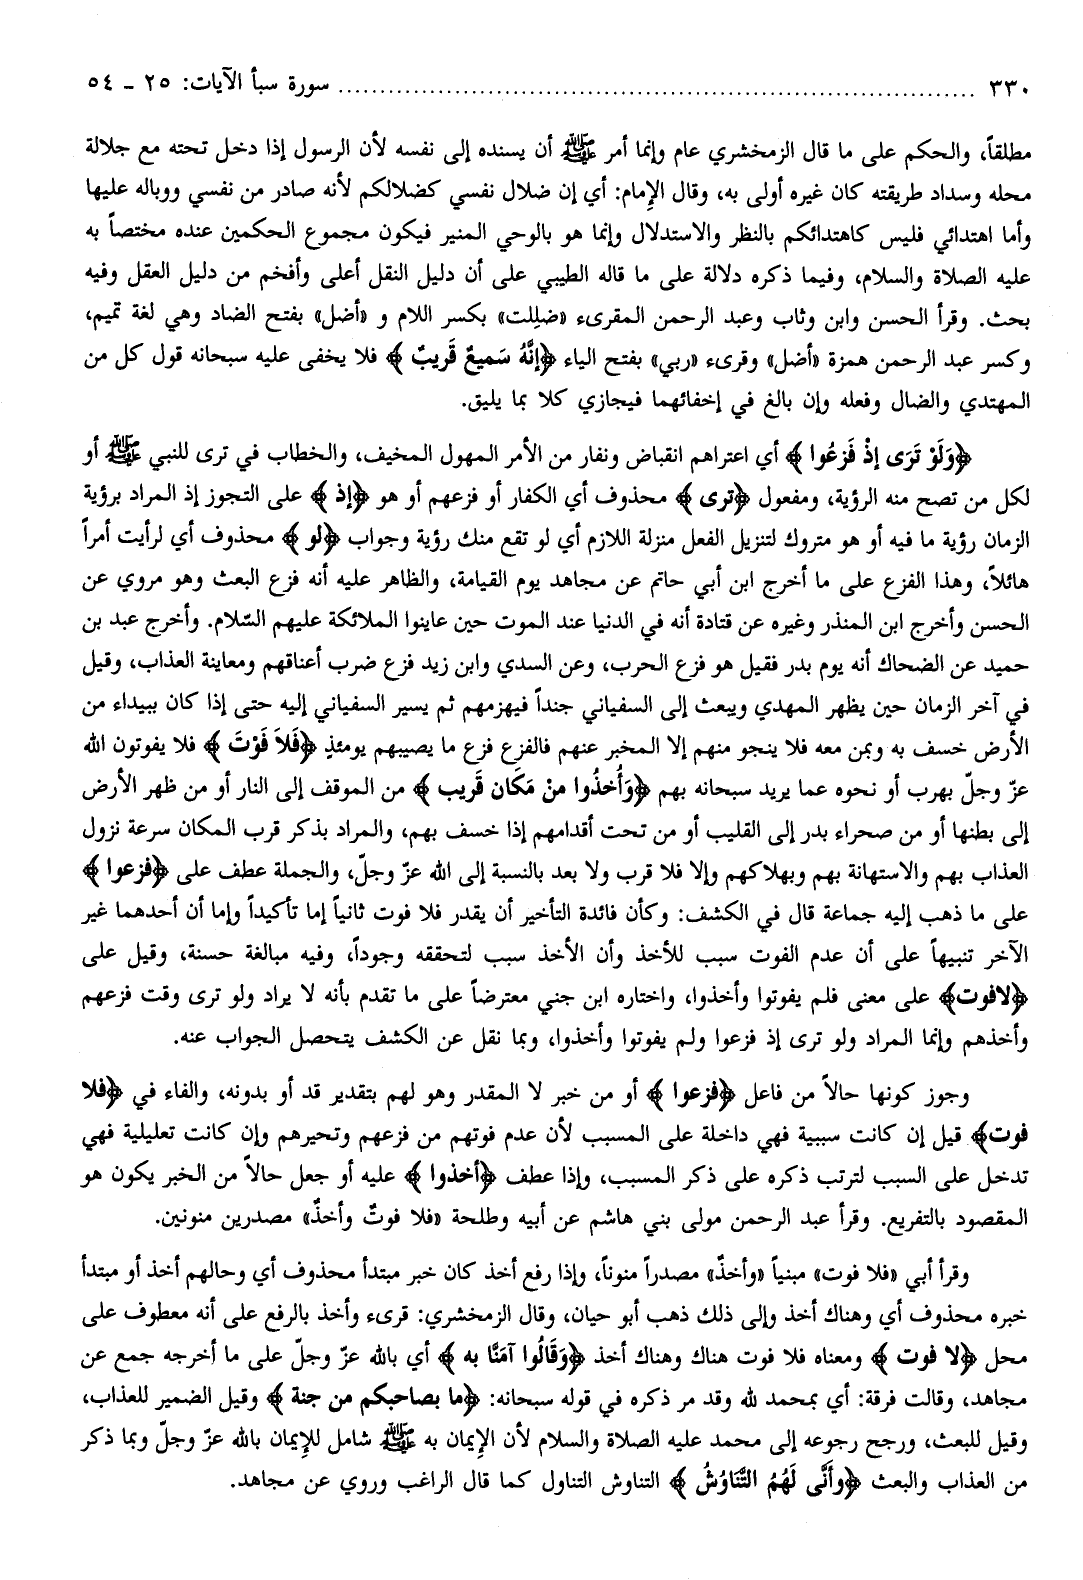 ٣٣٠ ........................................ سورة سبأ الآيات: ٢٥ - ٥٤
مطلقاً، والحكم على ما قال الزمخشري عام وإنما أمر ﷺ أن يسنده إلى نفسه لأن الرسول إذا دخل تحته مع جلالة
محله وسداد طريقته كان غيره أولى به، وقال الإمام: أي إن ضلال نفسي كضلالكم لأنه صادر من نفسي ووباله عليها
وأما اهتدائي فليس كاهتدائكم بالنظر والاستدلال وإنما هو بالوحي المنير فيكون مجموع الحكمين عنده مختصاً به
عليه الصلاة والسلام، وفيما ذكره دلالة على ما قاله الطيبي على أن دليل النقل أعلى وأفخم من دليل العقل وفيه
بحث. وقرأ الحسن وابن وثاب وعبد الرحمن المقرىء «ضلِلت» بكسر اللام و «أضل» بفتح الضاد وهي لغة تميم،
وكسر عبد الرحمن همزة «أضل» وقرىء «ربي» بفتح الياء ﴿إنَّهُ سَمِيعٌ قَرِيبٌ﴾ فلا يخفى عليه سبحانه قول كل من
المهتدي والضال وفعله وإن بالغ في إخفائهما فيجازي كلا بما يليق.
﴿وَلَوْ تَرَى إذْ فَزِعُوا﴾ أي اعتراهم انقباض ونفار من الأمر المهول المخيف، والخطاب في ترى للنبي ﷺ أو
لكل من تصح منه الرؤية، ومفعول ﴿ترى﴾ محذوف أي الكفار أو فزعهم أو هو ﴿إذ﴾ على التجوز إذ المراد برؤية
الزمان رؤية ما فيه أو هو متروك لتنزيل الفعل منزلة اللازم أي لو تقع منك رؤية وجواب ﴿لو﴾ محذوف أي لرأيت أمراً
هائلاً، وهذا الفزع على ما أخرج ابن أبي حاتم عن مجاهد يوم القيامة، والظاهر عليه أنه فزع البعث وهو مروي عن
الحسن وأخرج ابن المنذر وغيره عن قتادة أنه في الدنيا عند الموت حين عاينوا الملائكة عليهم السّلام. وأخرج عبد بن
حميد عن الضحاك أنه يوم بدر فقيل هو فزع الحرب، وعن السدي وابن زيد فزع ضرب أعناقهم ومعاينة العذاب، وقيل
في آخر الزمان حين يظهر المهدي ويبعث إلى السفياني جنداً فيهزمهم ثم يسير السفياني إليه حتى إذا كان ببيداء من
الأرض خسف به وبمن معه فلا ينجو منهم إلا المخبر عنهم فالفزع فزع ما يصيبهم يومئذٍ ﴿فَلاَ فَوْتَ﴾ فلا يفوتون الله
عزّ وجلّ بهرب أو نحوه عما يريد سبحانه بهم ﴿وَأُخذُوا منْ مَكَان قَريب﴾ من الموقف إلى النار أو من ظهر الأرض
إلى بطنها أو من صحراء بدر إلى القليب أو من تحت أقدامهم إذا خسف بهم، والمراد بذكر قرب المكان سرعة نزول
العذاب بهم والاستهانة بهم وبهلاكهم وإلا فلا قرب ولا بعد بالنسبة إلى الله عزّ وجلّ، والجملة عطف على ﴿فزعوا﴾
على ما ذهب إليه جماعة قال في الكشف: وكأن فائدة التأخير أن يقدر فلا فوت ثانياً إما تأكيداً وإما أن أحدهما غير
الآخر تنبيهاً على أن عدم الفوت سبب للأخذ وأن الأخذ سبب لتحققه وجوداً، وفيه مبالغة حسنة، وقيل على
﴿لافوت﴾ على معنى فلم يفوتوا وأخذوا، واختاره ابن جني معترضاً على ما تقدم بأنه لا يراد ولو ترى وقت فزعهم
وأخذهم وإنما المراد ولو ترى إذ فزعوا ولم يفوتوا وأخذوا، وبما نقل عن الكشف يتحصل الجواب عنه.
وجوز كونها حالاً من فاعل ﴿فزعوا﴾ أو من خبر لا المقدر وهو لهم بتقدير قد أو بدونه، والفاء في ﴿فلا
فوت﴾ قيل إن كانت سببية فهي داخلة على المسبب لأن عدم فوتهم من فزعهم وتحيرهم وإن كانت تعليلية فهي
تدخل على السبب لترتب ذكره على ذكر المسبب، وإذا عطف ﴿أخذوا﴾ عليه أو جعل حالاً من الخبر يكون هو
المقصود بالتفريع. وقرأ عبد الرحمن مولى بني هاشم عن أبيه وطلحة «فلا فوتٌ وأخذٌ» مصدرين منونين.
وقرأ أبي «فلا فوت» مبنياً «وأخذ» مصدراً منوناً، وإذا رفع أخذ كان خبر مبتدأ محذوف أي وحالهم أخذ أو مبتدأ
خبره محذوف أي وهناك أخذ وإلى ذلك ذهب أبو حيان، وقال الزمخشري: قرىء وأخذ بالرفع على أنه معطوف على
محل ﴿لا فوت﴾ ومعناه فلا فوت هناك وهناك أخذ ﴿وَقَالُوا آمَنَّا به﴾ أي بالله عزّ وجلّ على ما أخرجه جمع عن
مجاهد، وقالت فرقة: أي بمحمد لله وقد مر ذكره في قوله سبحانه: ﴿ما بصاحبكم من جنة﴾ وقيل الضمير للعذاب،
وقيل للبعث، ورجح رجوعه إلى محمد عليه الصلاة والسلام لأن الإيمان به ﷺ شامل للإيمان بالله عزّ وجلّ وبما ذكر
من العذاب والبعث ﴿وأَنَّى لَهُمُ التَّنَاوُشُ﴾ التناوش التناول كما قال الراغب وروي عن مجاهد.